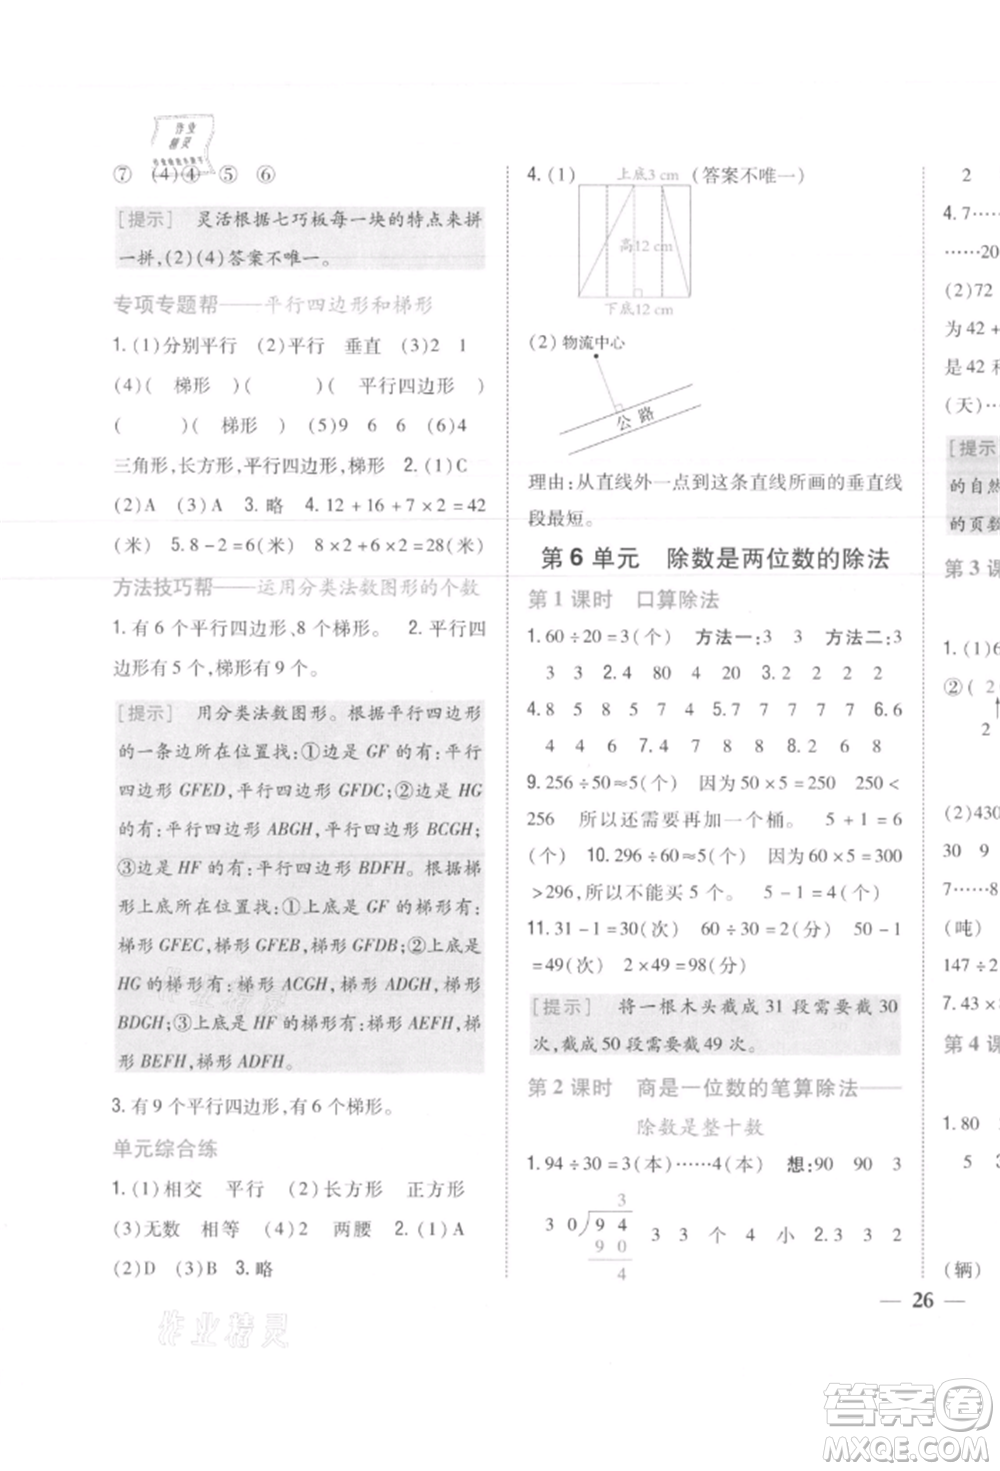 作业
精灵
⑦ (4)④ ⑤ ⑥
[提示] 灵活根据七巧板每一块的特点来拼
一拼,(2)(4)答案不唯一。
专项专题帮——平行四边形和梯形
1.(1)分别平行 (2)平行 垂直 (3)2 1
(4)( 梯形 )( )( 平行四边形 )
( )( 梯形 ) (5)9 6 6 (6)4
三角形,长方形,平行四边形,梯形 2.(1)C
(2)A (3)A 3.略 4.12+16+7+7=42
(米) 5.8-2=6(米) 8×2+6×2=28(米)
方法技巧帮——运用分类法数图形的个数
1.有 6 个平行四边形、8 个梯形。 2.平行四
边形有 5 个,梯形有 9 个。
[提示] 用分类法数图形。根据平行四边形
的一条边所在位置找:①边是 GF 的有:平行
四边形 GFED,平行四边形 GFDC;②边是 HG
的有:平行四边形 ABGH,平行四边形 BCGH;
③边是 HF 的有:平行四边形 BDFH。根据梯
形上底所在位置找:①上底是 GF 的梯形有:
梯形 GFEC,梯形 GFEB,梯形 GFDB;②上底是
HG 的梯形有:梯形 ACGH,梯形 ADGH,梯形
BDGH;③上底是 HF 的梯形有:梯形 AEFH,梯
形 BEFH,梯形 ADFH。
3.有 9 个平行四边形,有 6 个梯形。
单元综合练
1.(1)相交 平行 (2)长方形 正方形
(3)无数 相等 (4)2 两腰 2.(1)A
(2)D (3)B 3.略
作业精灵
4.(1) 上底3 cm (答案不唯一)
高12 cm
下底12 cm
(2) 物流中心
公路
理由:从直线外一点到这条直线所画的垂直线
段最短。
第 6 单元 除数是两位数的除法
第 1 课时 口算除法
1.60÷20=3(个) 方法一:3 3 方法二:3
3 3 2.4 80 4 20 3.2 2 2 2 2
4.8 5 8 5 7 4 5.7 7 7 7 7 6.6
4 4 6 6 7.4 4 8.2 6 4 8
9.256÷50≈5(个) 因为 50×5=250 250<
256 所以还需要再加一个桶。 5+1=6
(个) 10.296÷60≈5(个) 因为60×5=300
>296,所以不能买 5 个。 5-1=4(个)
11.31-1=30(次) 60÷30=2(分) 50-1
=49(次) 2×49=98(分)
[提示] 将一根木头截成 31 段需要截 30
次,截成50 段需要截 49 次。
第 2 课时 商是一位数的笔算除法——
除数是整十数
1.94÷30=3(本)……4(本) 想:90 90 3
3
3 0 9 4 3 3 个 4 小 2.3 3 2
9 0
4
2
4.7……
……20
(2)72
为 42+
是 42 
(天)…
[提示]
的自然
的页数
第 3 课
1.(1)6
②( 2
2
(2)430
30 9
7……8
(吨)
147÷2
7.43×
第 4 课
1.80
5
(辆)
— 26 —
答案卷
MXQE.COM